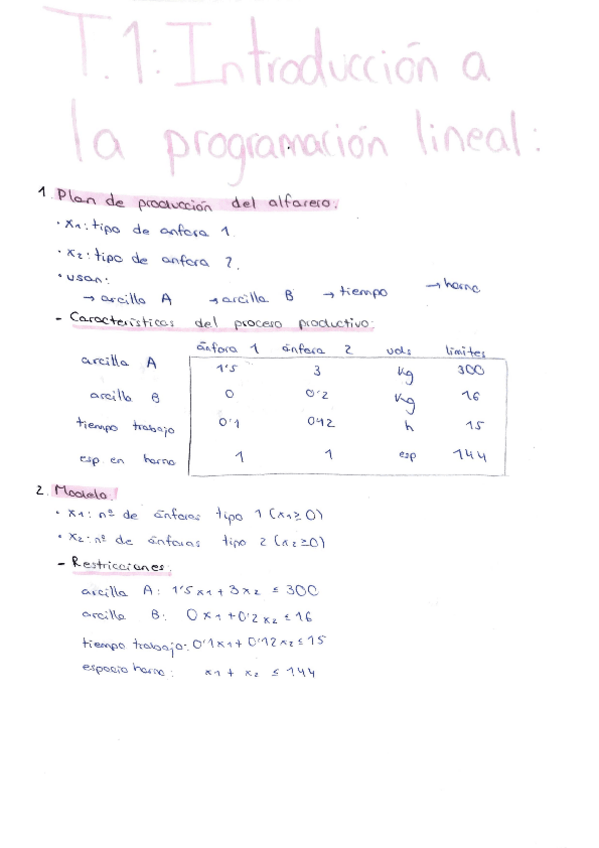 T.1: Introducción a
la programación lineal:
1. Plan de producción del alfarero:
· x1: tipo de anfora 1.
· x2: tipo de anfora 2.
· usan:
→ arcilla A → arcilla B → tiempo → horno
- Características del proceso productivo:
ánfora 1 ánfora 2 uds límites
arcilla A 1'5 3 kg 300
arcilla B 0 0'2 kg 16
tiempo trabajo 0'1 012 h 15
esp en horno 1 1 esp 144
2. Modelo:
· x1: nº de ánforas tipo 1 (x1≥0)
· x2: nº de ánforas tipo 2 (x2≥0)
- Restricciones:
arcilla A: 1'5x1 + 3x2 ≤ 300
arcilla B: 0x1 + 0'2x2 ≤ 16
tiempo trabajo: 0'1x1 + 0'12x2 ≤ 15
espacio horno: x1 + x2 ≤ 144